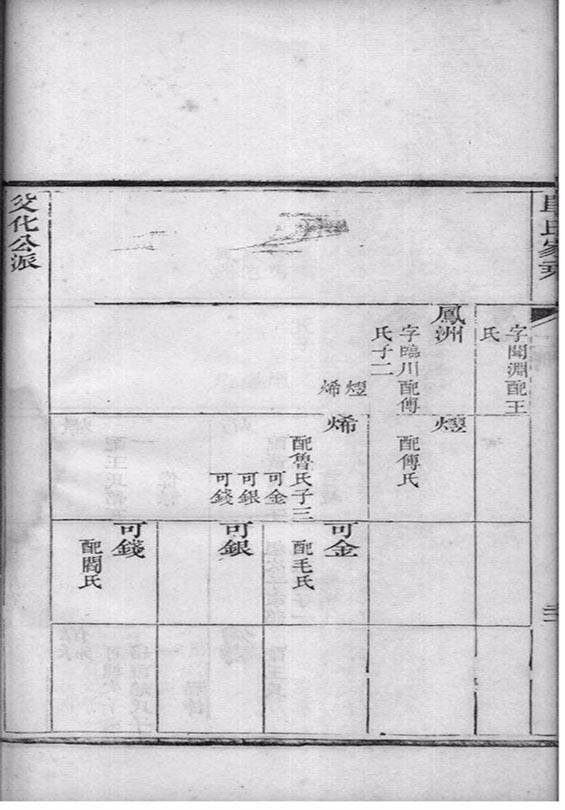 氏家乘
字聞淵配王
氏
鳳洲
字臨川配傅
氏子二
烯
配傅氏
烯
配魯氏子三
可金
可銀
可錢
可金
配毛氏
可銀
可錢
配閻氏
文化公派